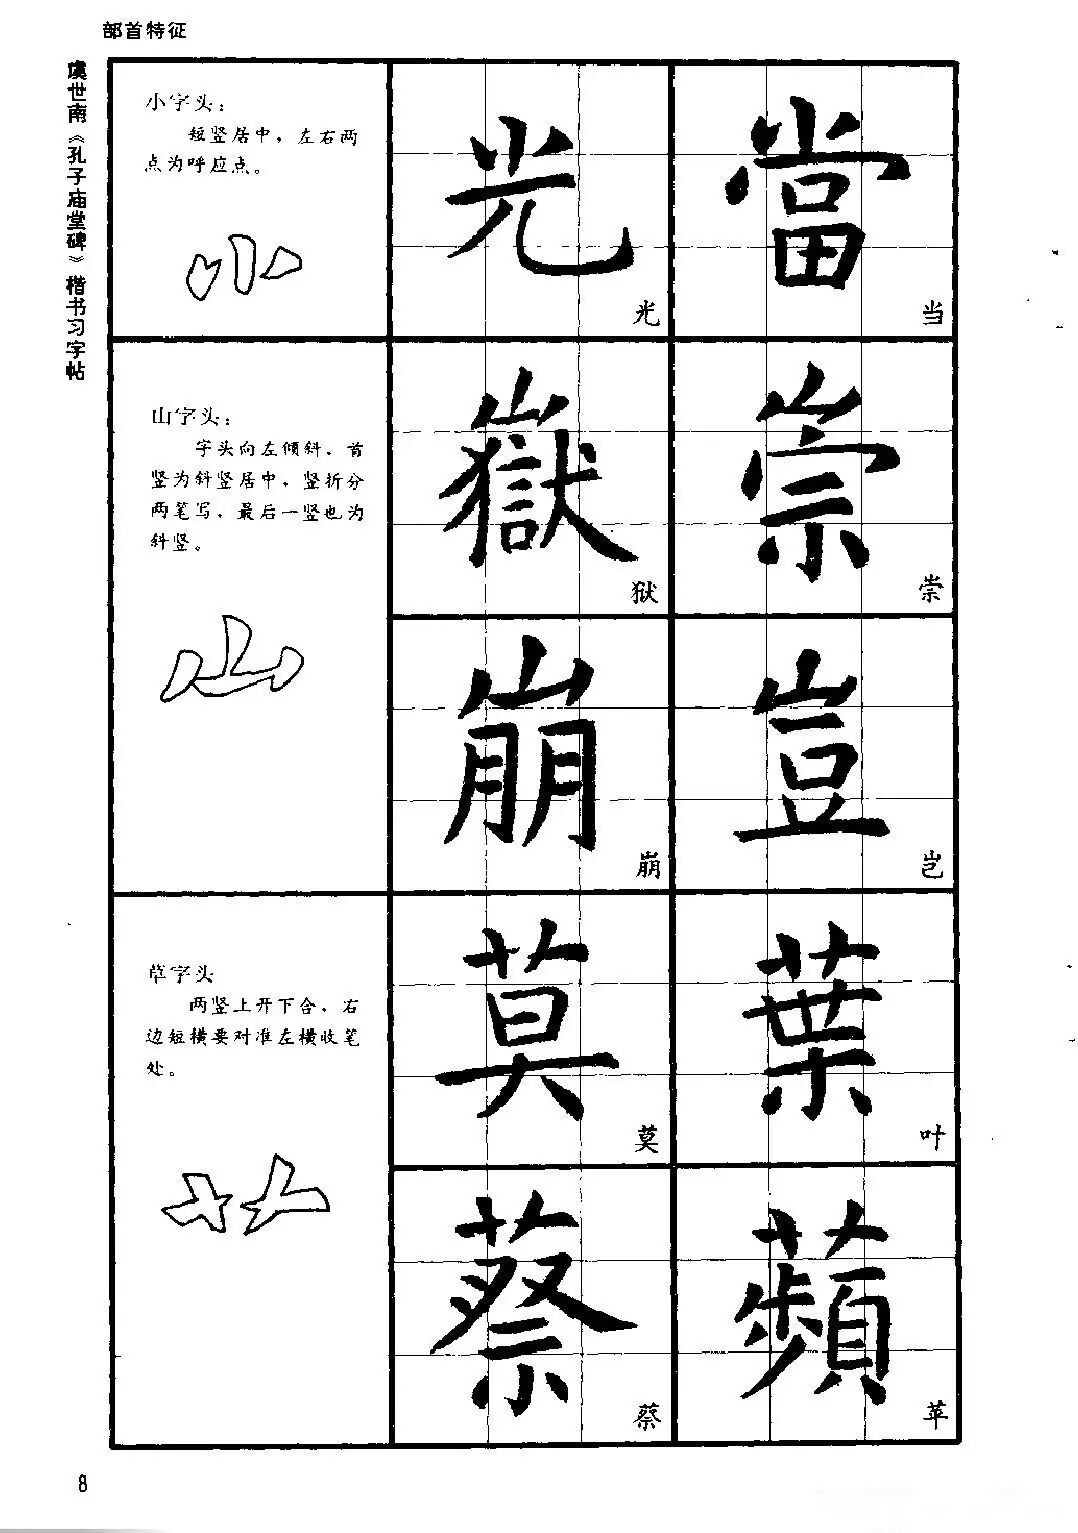 部首特征
虞世南《孔子庙堂碑》楷书习字帖
小字头：
短竖居中，左右两
点为呼应点。
小
光
光
當
当
山字头：
字头向左倾斜，首
竖为斜竖居中，竖折分
两笔写，最后一竖也为
斜竖。
山
嶽
狱
崇
崇
崩
崩
豈
岂
草字头
两竖上开下合，右
边短横要对准左横收笔
处。
艹
莫
莫
葉
叶
蔡
蔡
蘋
苹
8